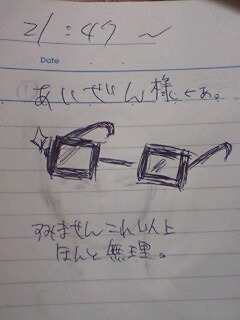 21:47～
Date
あいぜん様とあ。
すみません これ以上
ほんと無理。